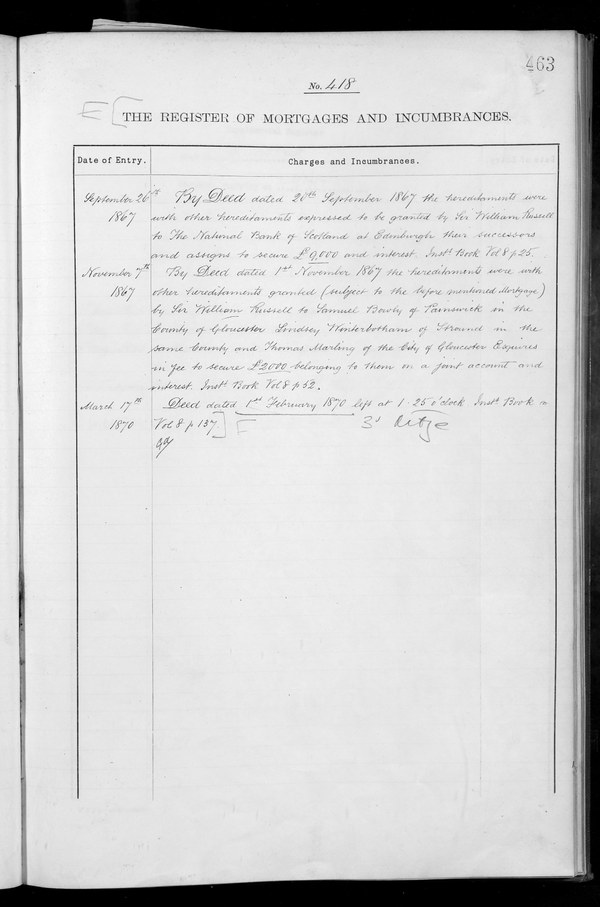 463
No. 418
E [ THE REGISTER OF MORTGAGES AND INCUMBRANCES.
Date of Entry. Charges and Incumbrances.
September 26th By Deed dated 20th September 1867 the hereditaments were
1867 with other hereditaments expressed to be granted by Sir William Russell
to The National Bank of Scotland at Edinburgh their successors
and assigns to secure £9,000 and interest. Inst. Book Vol 8 p 25.
November 7th By Deed dated 1st November 1867 the hereditaments were with
1867 other hereditaments granted (subject to the before mentioned Mortgage)
by Sir William Russell to Samuel Bowly of Painswick in the
County of Gloucester Lindsey Winterbotham of Stroud in the
same County and Thomas Marling of the City of Gloucester Esquires
in fee to secure £2000 belonging to them on a joint account and
interest. Inst. Book Vol 8 p 52.
March 17th Deed dated 1st February 1870 left at 1.25 o'clock. Inst. Book
1870 Vol 8 p 137 ] F 3d Mtge